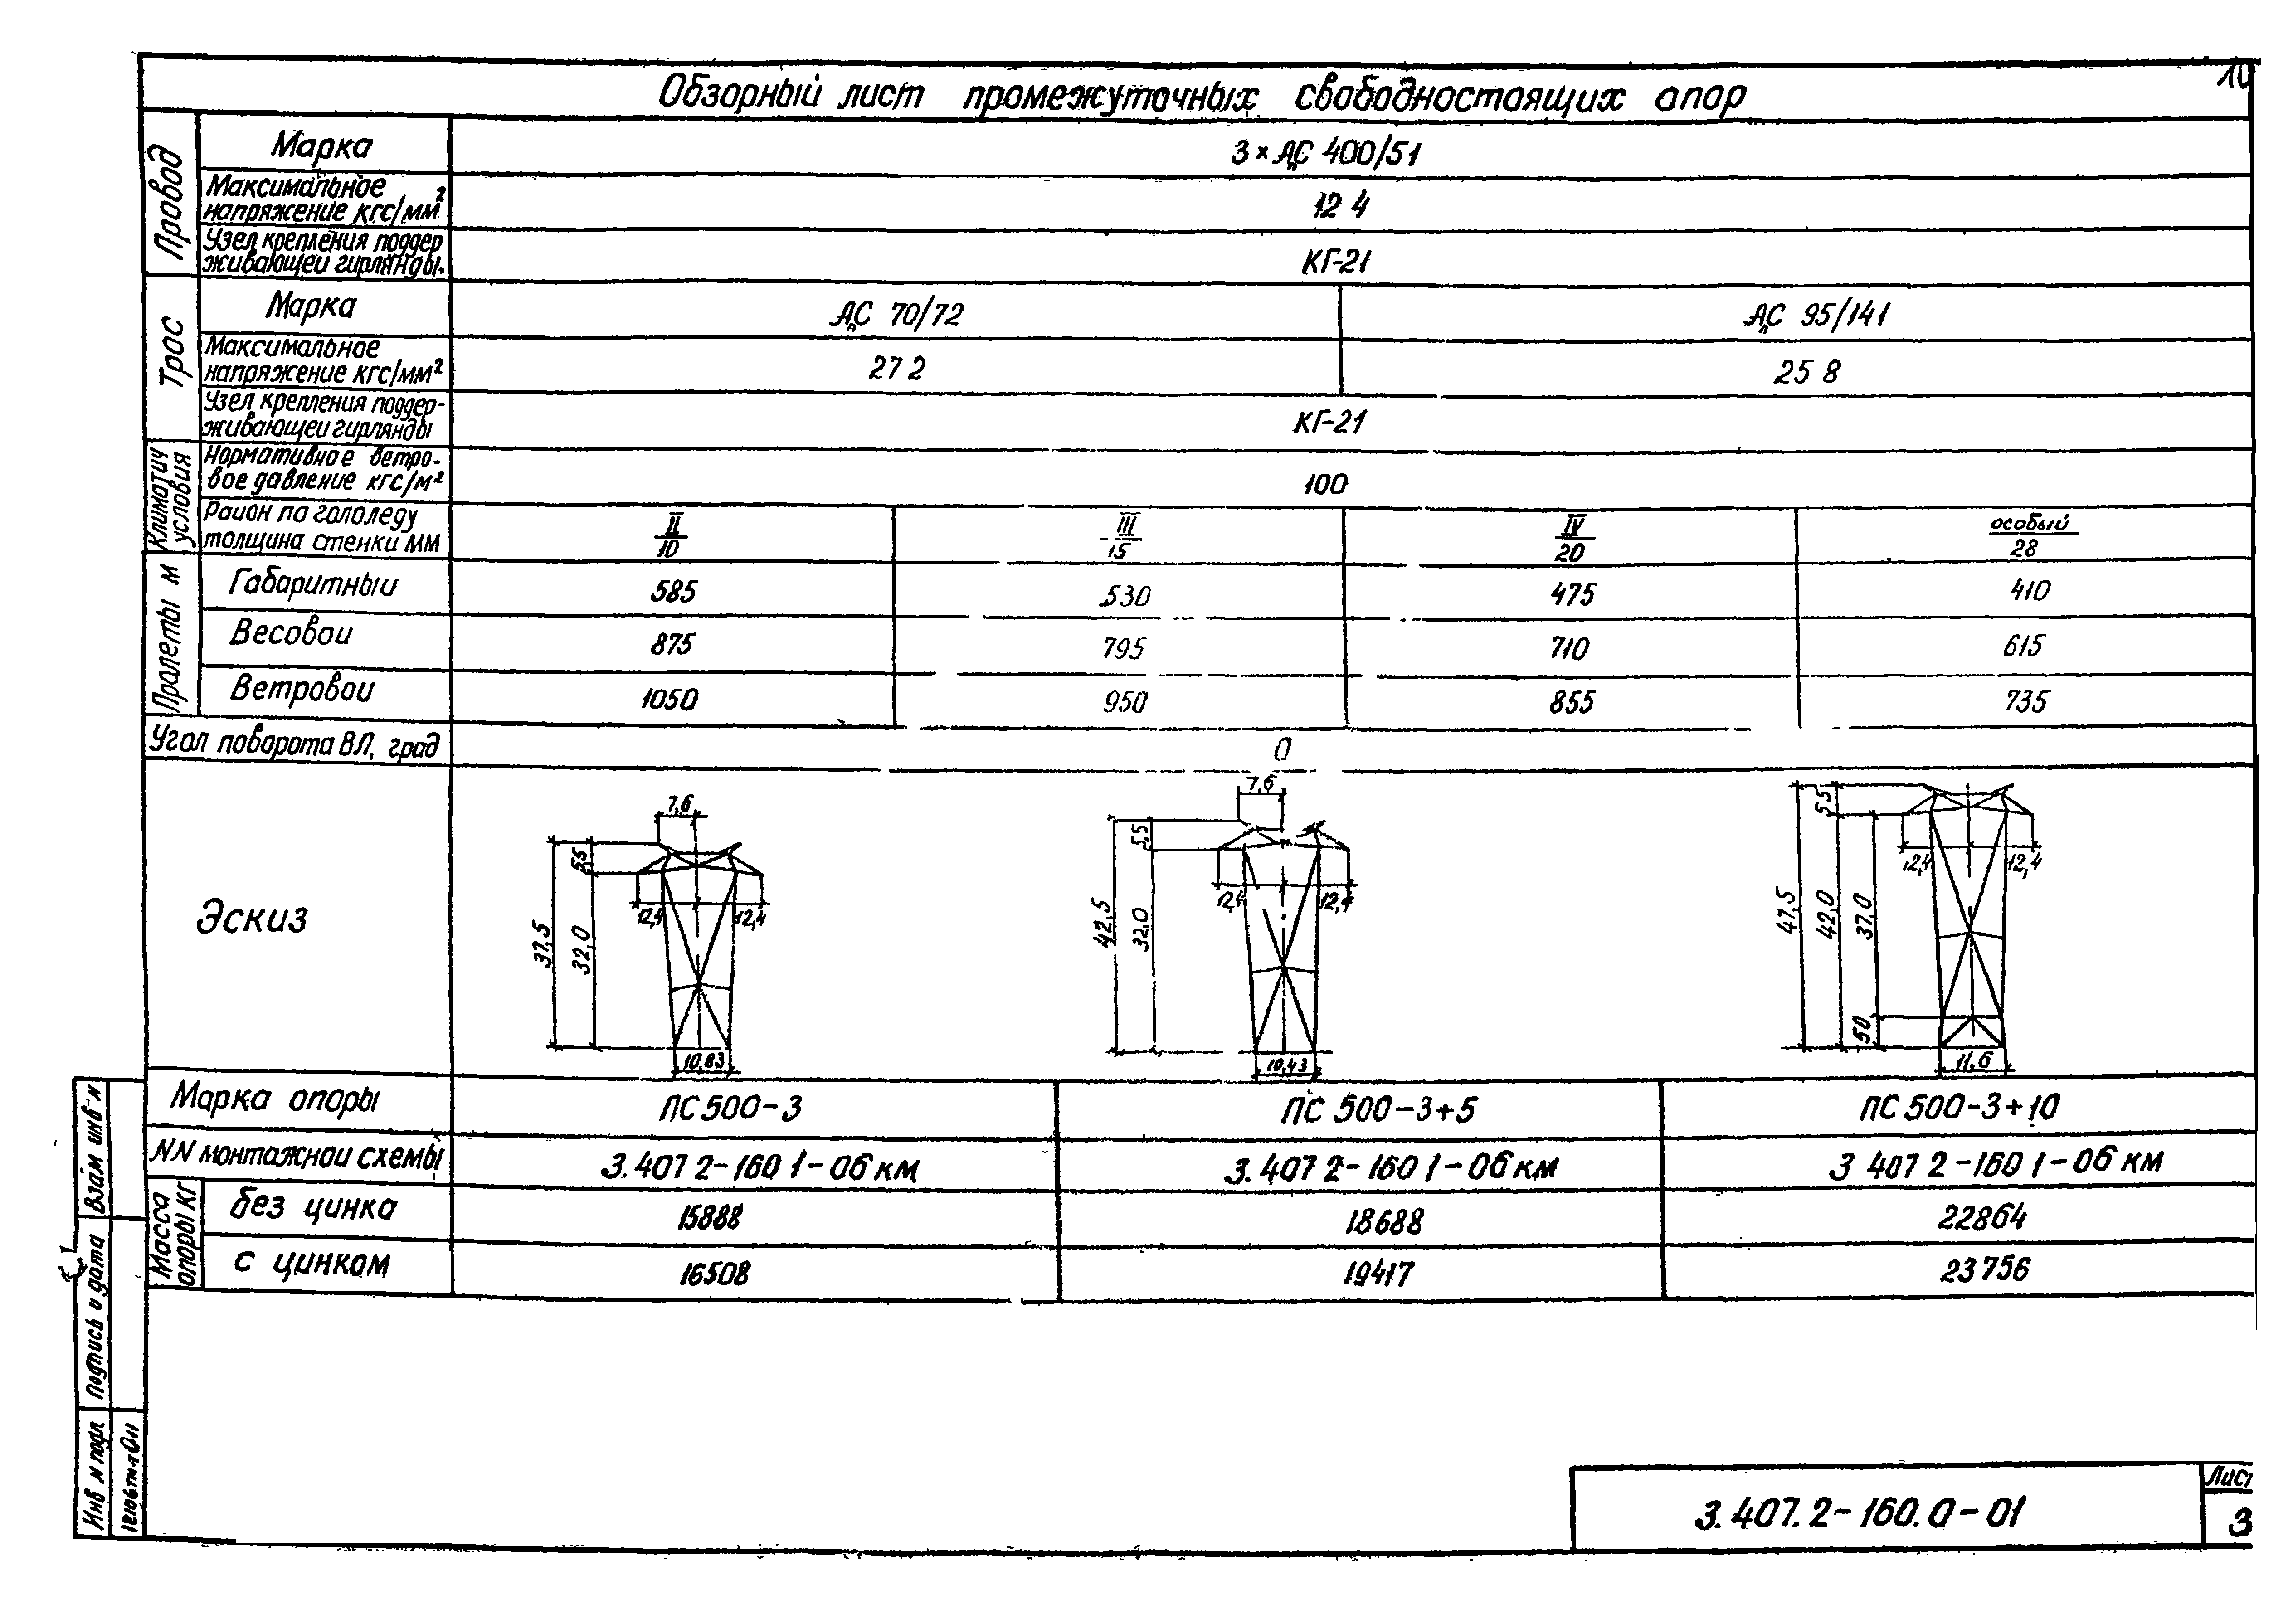 10
Обзорный лист промежуточных свободностоящих опор
Провод
Марка
3 × АС 400/51
Максимальное
напряжение кгс/мм²
12 4
Узел крепления поддер
живающеи гирлянды.
КГ-21
Трос
Марка
АС 70/72
АС 95/141
Максимальное
напряжение кгс/мм²
27 2
25 8
Узел крепления поддер-
живающеи гирлянды
КГ-21
Климатич
условия
Нормативное ветро-
вое давление кгс/м²
100
Раион по гололеду
толщина стенки мм
II
10
III
15
IV
20
особый
28
Пролеты м
Габаритныи
585
530
475
410
Весовои
875
795
710
615
Ветровои
1050
950
855
735
Угол поворота ВЛ, град
0
Эскиз
7,6
5,5
12,4
12,4
37,5
32,0
10,83
7,6
5,5
12,4
12,4
42,5
32,0
10,43
5,5
12,4
12,4
47,5
42,0
37,0
50
11,6
Марка опоры
ПС 500-3
ПС 500-3+5
ПС 500-3+10
NN монтажнои схемы
3.407 2-160 1-06 км
3.407 2-160 1-06 км
3 407 2-160 1-06 км
Масса
опоры кг
без цинка
15888
18688
22864
с цинком
16508
19417
23756
Взам инв н
Подпись и дата
Инв н подл
3.407.2-160.0-01
Лист
3